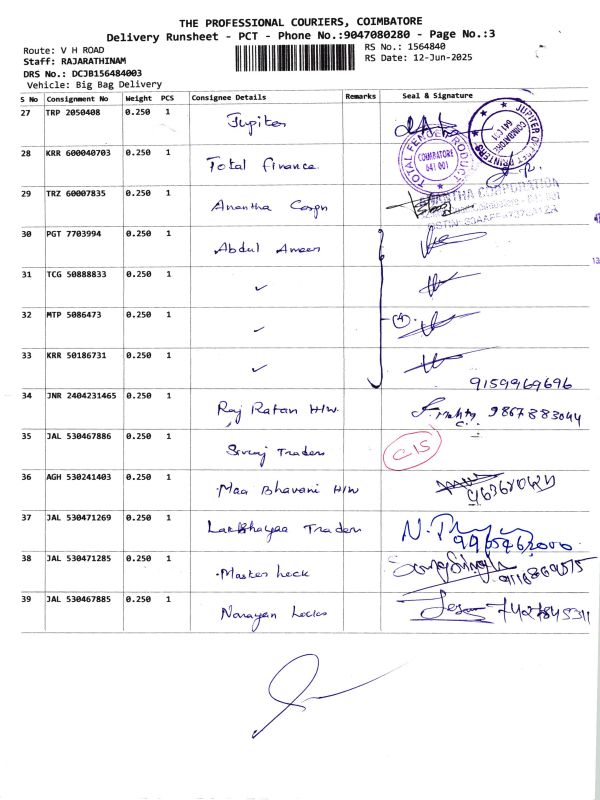 THE PROFESSIONAL COURIERS, COIMBATORE
Delivery Runsheet - PCT - Phone No.:9047080280 - Page No.:3
Route: V H ROAD
RS No.: 1564840
Staff: RAJARATHINAM
RS Date: 12-Jun-2025
DRS No.: DCJB156484003
Vehicle: Big Bag Delivery
S No Consignment No Weight PCS Consignee Details Remarks Seal & Signature
27 TRP 2050408 0.250 1 Jupiter
JUPITER OFFSET PRINTERS COIMBATORE 641 011
28 KRR 600040703 0.250 1 Total Finance
COIMBATORE 641 001
29 TRZ 60007835 0.250 1 Anantha Corpn
ANANTHA CORPORATION
30 PGT 7703994 0.250 1 Abdul Ameer
31 TCG 50888833 0.250 1 ✓
32 MTP 5086473 0.250 1 ✓ 4
33 KRR 50186731 0.250 1 ✓
9159969696
34 JNR 2404231465 0.250 1 Raj Ratan H/w.
35 JAL 530467886 0.250 1 Sivraj Traders CIS
36 AGH 530241403 0.250 1 Maa Bhavani H/w
37 JAL 530471269 0.250 1 Traders
38 JAL 530471285 0.250 1 Master Lock
39 JAL 530467885 0.250 1 Narayan Locks